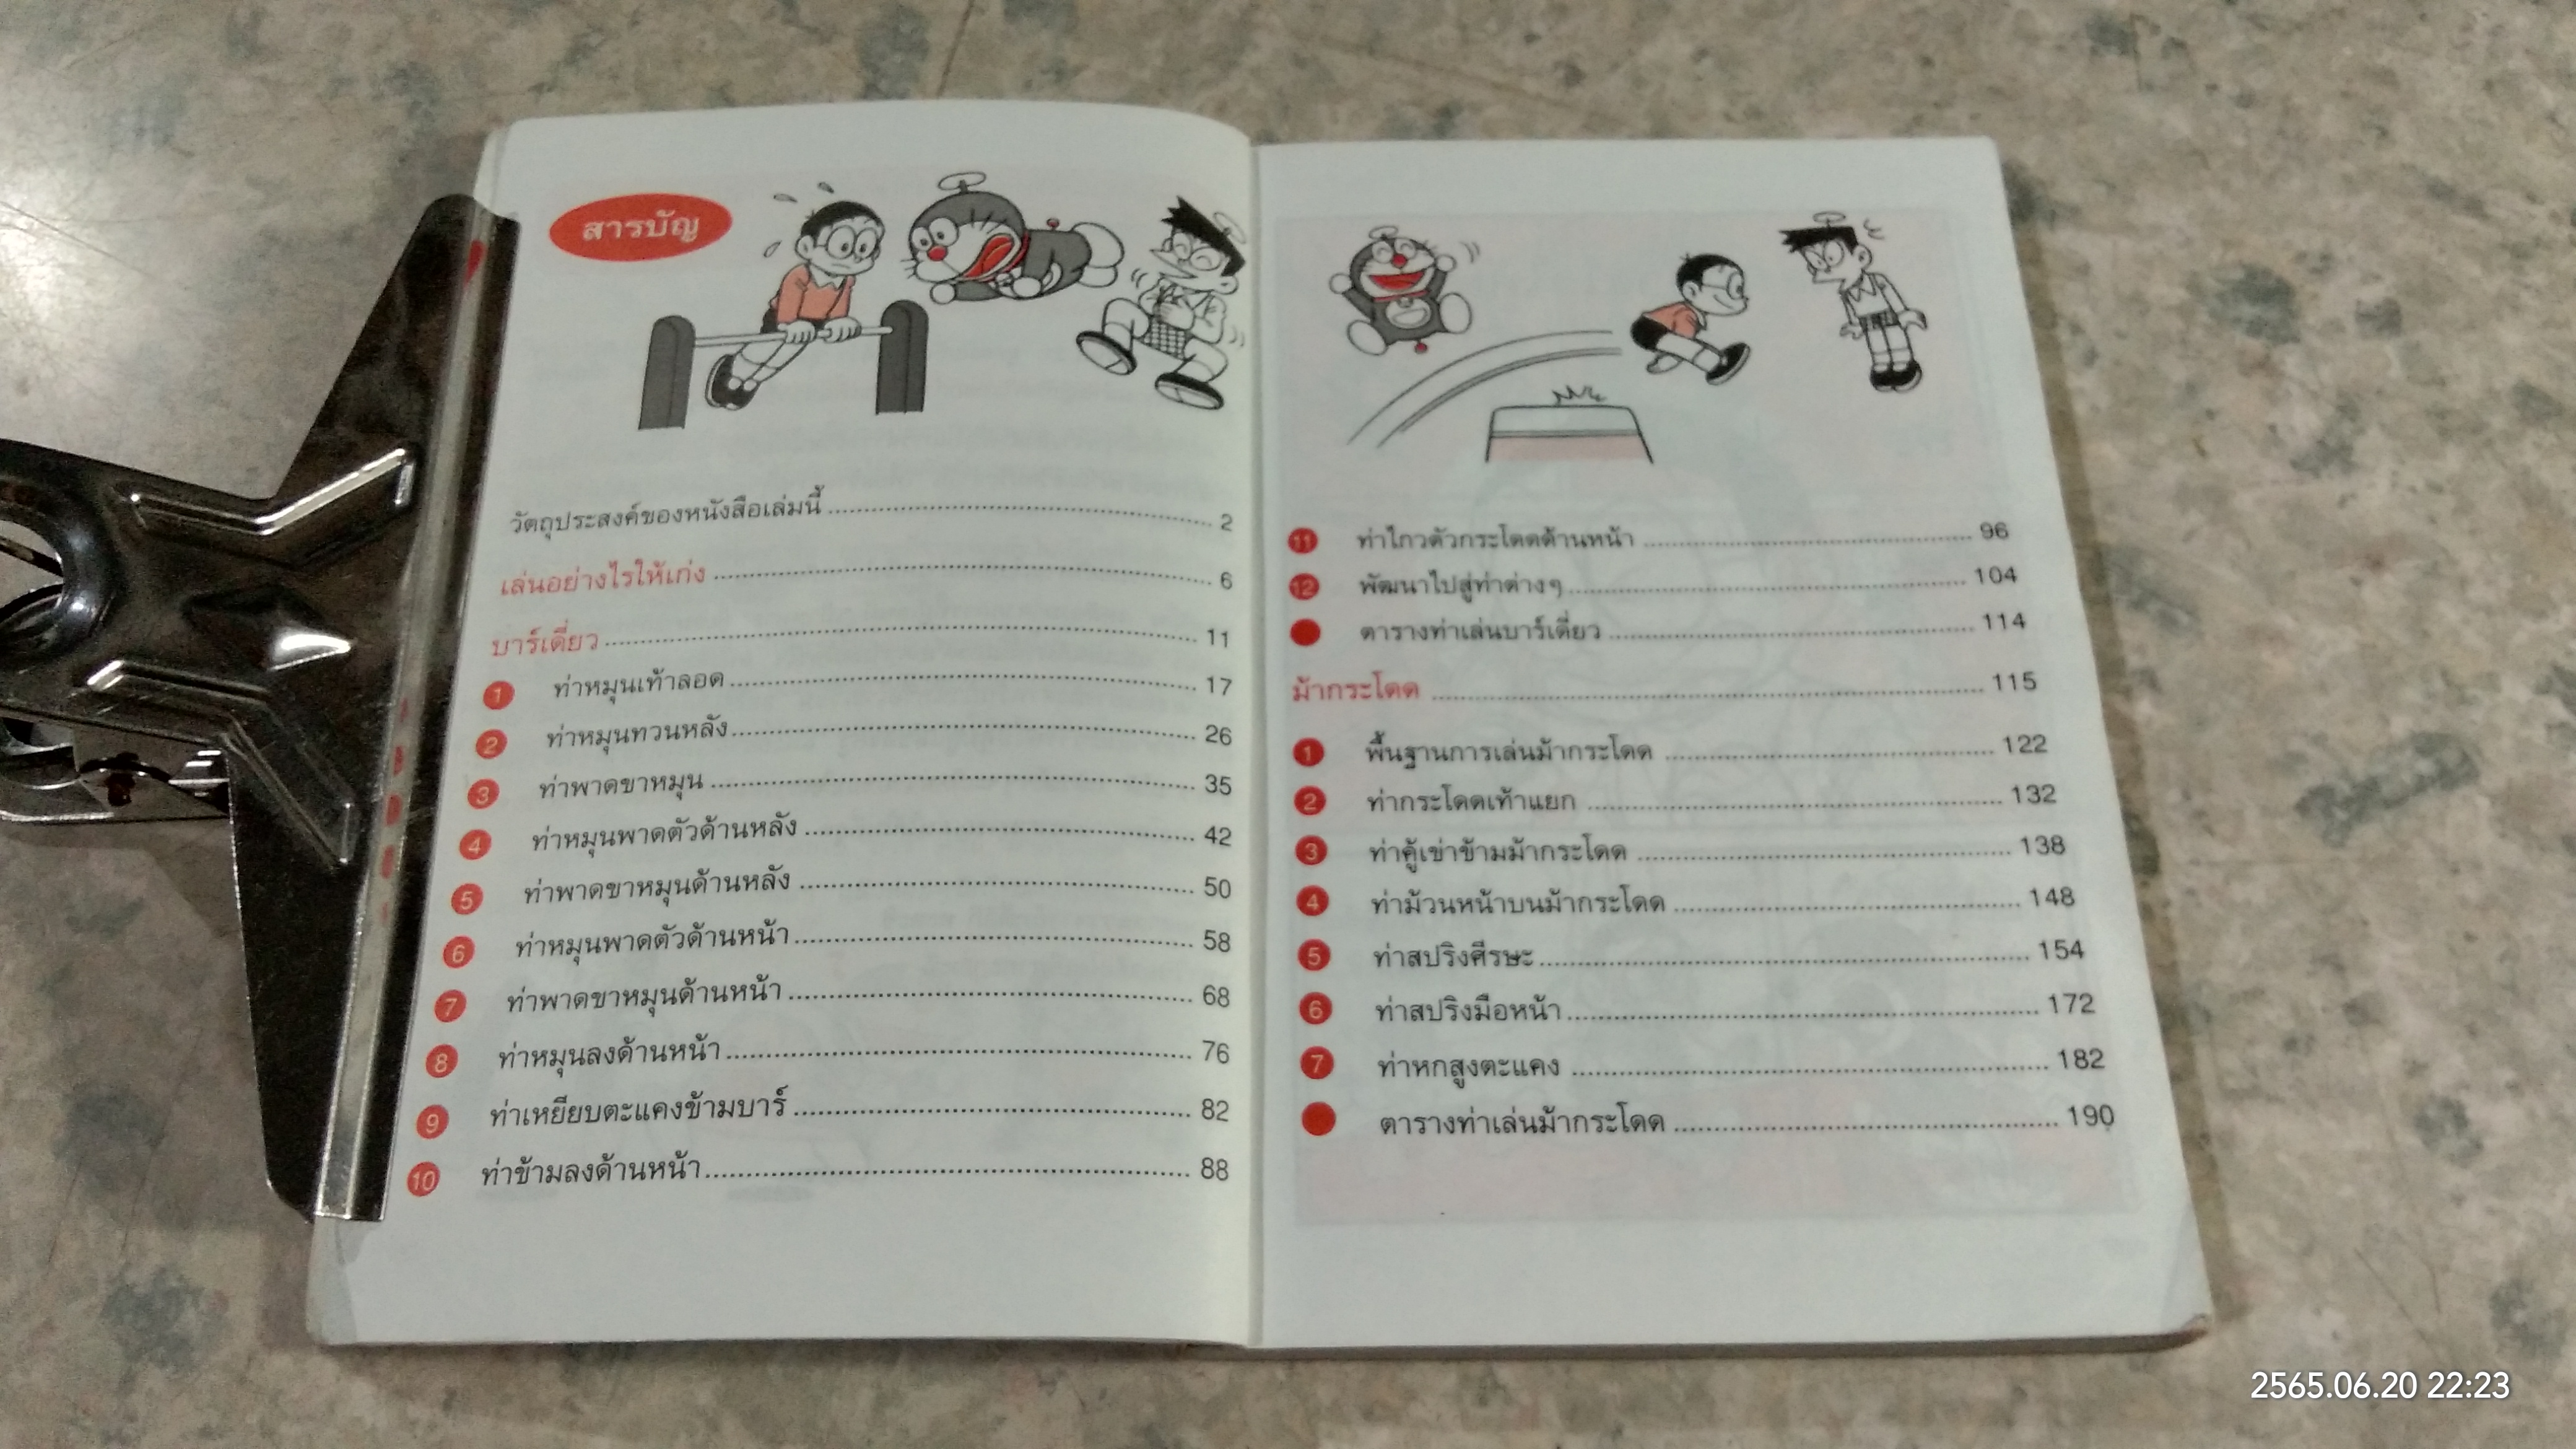 สารบัญ
วัตถุประสงค์ของหนังสือเล่มนี้ 2
เล่นอย่างไรให้เก่ง 6
บาร์เดี่ยว 11
1 ท่าหมุนเท้าลอด 17
2 ท่าหมุนทวนหลัง 26
3 ท่าพาดขาหมุน 35
4 ท่าหมุนพาดตัวด้านหลัง 42
5 ท่าพาดขาหมุนด้านหลัง 50
6 ท่าหมุนพาดตัวด้านหน้า 58
7 ท่าพาดขาหมุนด้านหน้า 68
8 ท่าหมุนลงด้านหน้า 76
9 ท่าเหยียบตะแคงข้ามบาร์ 82
10 ท่าข้ามลงด้านหน้า 88
11 ท่าไกวตัวกระโดดด้านหน้า 96
12 พัฒนาไปสู่ท่าต่างๆ 104
ตารางท่าเล่นบาร์เดี่ยว 114
ม้ากระโดด 115
1 พื้นฐานการเล่นม้ากระโดด 122
2 ท่ากระโดดเท้าแยก 132
3 ท่าคู้เข่าข้ามม้ากระโดด 138
4 ท่าม้วนหน้าบนม้ากระโดด 148
5 ท่าสปริงศีรษะ 154
6 ท่าสปริงมือหน้า 172
7 ท่าหกสูงตะแคง 182
ตารางท่าเล่นม้ากระโดด 190
2565.06.20 22:23